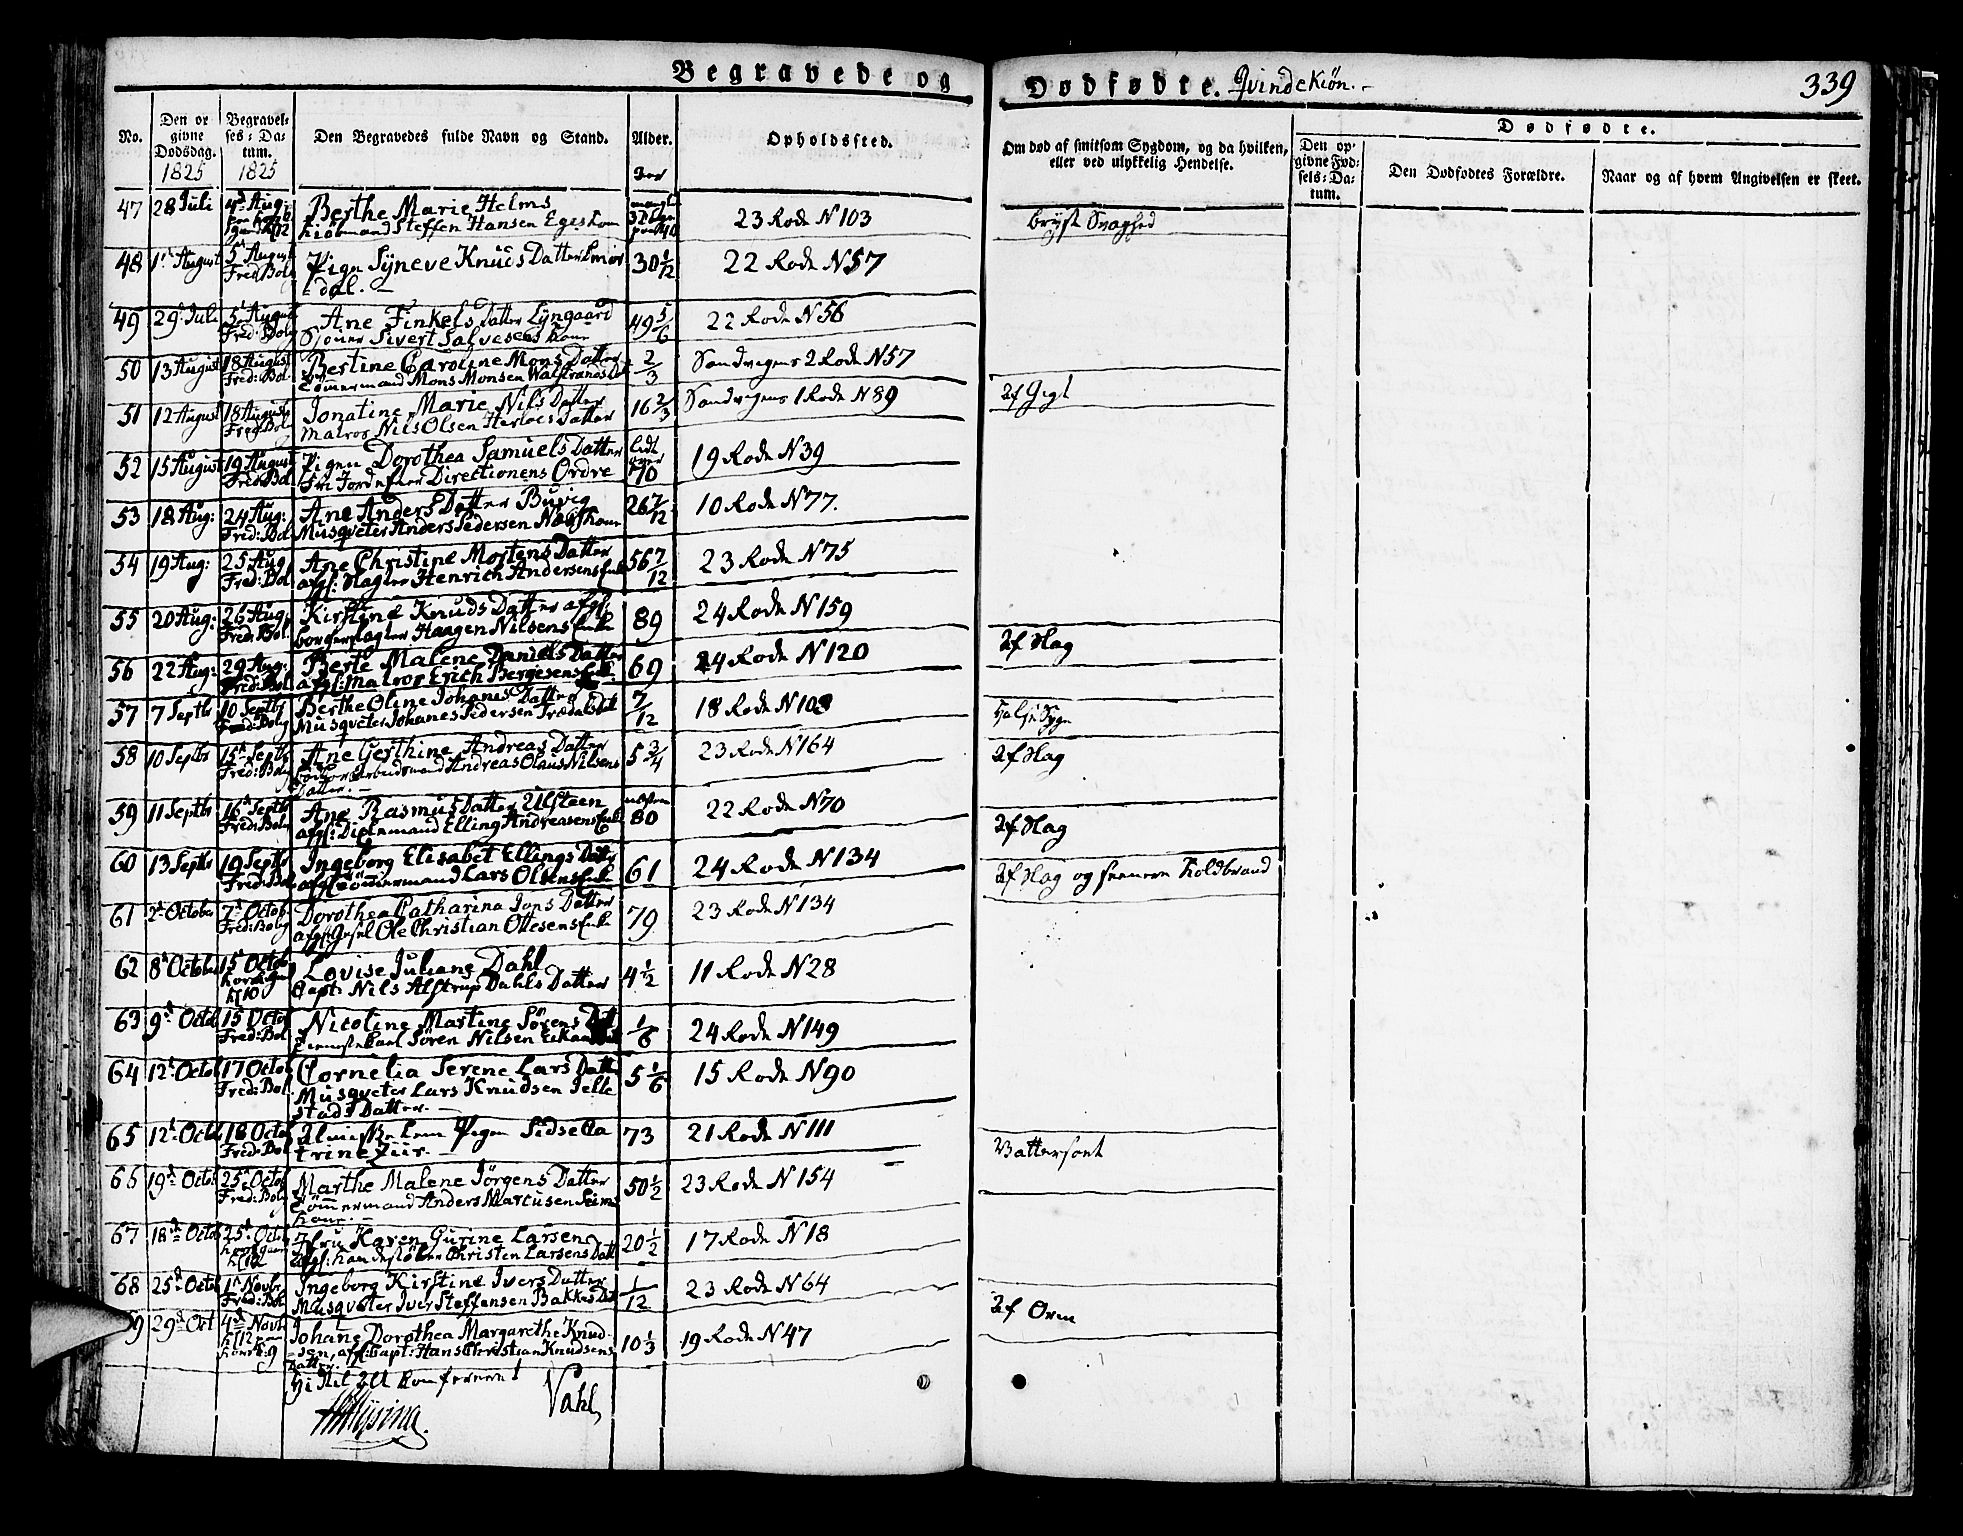 Begravede og Dødfødte. Qvindekiøn.
339
No.
Den opgivne Dødsdag. 1825
Begravelses-Datum. 1825
Den Begravedes fulde Navn og Stand.
Alder.
Opholdssted.
Om død af smitsom Sygdom, og da hvilken, eller ved ulykkelig Hendelse.
Dødfødte.
Den opgivne Fødsels-Datum.
Den Dødfødtes Forældre.
Naar og af hvem Angivelsen er skeet.
47 28 Juli 4de Aug: Berthe Marie Helms 23 Rode N 103 bryst Svaghed
Steffen Hansen
48 1t August 5t August Pigen Syneve Knuds Datter Smörs 30 1/12 22 Rode N 57
Fred: Bol dal.
49 29d Juli 5t August Ane Finkels Datter Lyngaard 49 5/6 22 Rode N 56
Fred: Bolg Sivert Salvesens Kone
50 13 August 18 August Bertine Caroline Mons Datter 2/3 Sandvigens 2 Rode N 57
Fred: Bol Tömmermand Mons Monsen
51 12 August 18 August Jonatine Marie Nils Datter 16 2/3 Sandvigens 1 Rode N 89 Af Gigt
Fred: Bol Matros Nils Olsen Datter
52 15 August 19 August Pigen Dorothea Samuels Datter lidt over 70 19 Rode N 39
Fred: Bol Fri Jord efter Directionens Ordre
53 18 Aug: 24 Aug: Ane Anders Datter Buvig 26 7/12 10 Rode N 77.
Fred: Bol Musqveter Anders Pedersen
54 19 Aug: 25 Aug Ane Christine Mortens Datter 56 7/12 23 Rode N 75
Fred: Bol afgl: Slagter Henrich Andersens Enke
55 20 Aug: 26 Aug. Kirstine Knuds Datter afgl: 89 24 Rode N 159
Fred: Bol. Haagen Nilsens Enke
56 22 Aug: 29 Aug: Berte Malene Daniels Datter 69 24 Rode N 120 Af Slag
Fred: Bol afgl: Matros Erich Bergesens Enke
57 7 Septbr 10 Septbr Berthe Oline Johanes Datter 7/12 18 Rode N 103 Halssyge
Fred: Bolg Musqveter Johanes Pedersen
58 10 Septbr 15d Septbr Ane Gerthine Andreas Datter 5 3/4 23 Rode N 164 Af Slag
Fred: Bolg Andreas Olaus Nilsens
Datter.
59 11 Septbr 16d Septbr Ane Rasmus Datter Ulsteen næsten 80 22 Rode N 70 Af Slag
Fred: Bol afgl: Elling Andreasens Enke
60 13 Septbr 19 Septbr Ingeborg Elisabet Ellings Datter 61 24 Rode N 134 Af Slag og Koldbrand
Fred: Bol afgl Tömmermand Lars Olsens Enke
61 2d October 7d Octob Dorothea Catharina Jons Datter 79 23 Rode N 134
Fred: Bolg afgl: Ole Christian Ottesens Enke
62 8d October 15d Octob Lovise Juliane Dahl 4 1/2 11 Rode N 28
Capt: Nils Alstrup Dahls Datter
63 9d Octob 15 Octob Nicoline Martine Sörens Dat 1/6 24 Rode N 149
Fred: Bol Sören Nilsen
64 12t Octob 17 Octob Cornelia Serene Lars Datt 5 1/6 15 Rode N 90
Fred: Bol. Musqveter Lars Knudsen Jelle
stads Datter.
65 12t Octob 18 Octob Pigen Sidsella 73 21 Rode N 111 Vattersoet
Fred: Bol trine
66 19d Octob 25d Octob Marthe Malene Jörgens Datter 50 1/2 23 Rode N 154
Fred: Bolg Tömmermand Anders Marcusen
Kone.
67 18de Octob 25d Octob Karen Gurine Larsen 20 1/2 17 Rode N 18
afgl: Christen Larsens Datt
68 25d Octob 1t Novbr Ingeborg Kirstine Ivers Datter 1/12 23 Rode N 64 Af Orm
Fred: Bol Musqveter Iver Steffensen Bakke
9 29d Oct 4de Novbr Johane Dorothea Margarethe Knud- 10 1/3 19 Rode N 47
sen, afgl: Capt: Hans Christian Knudsens
Datter.
Vahl